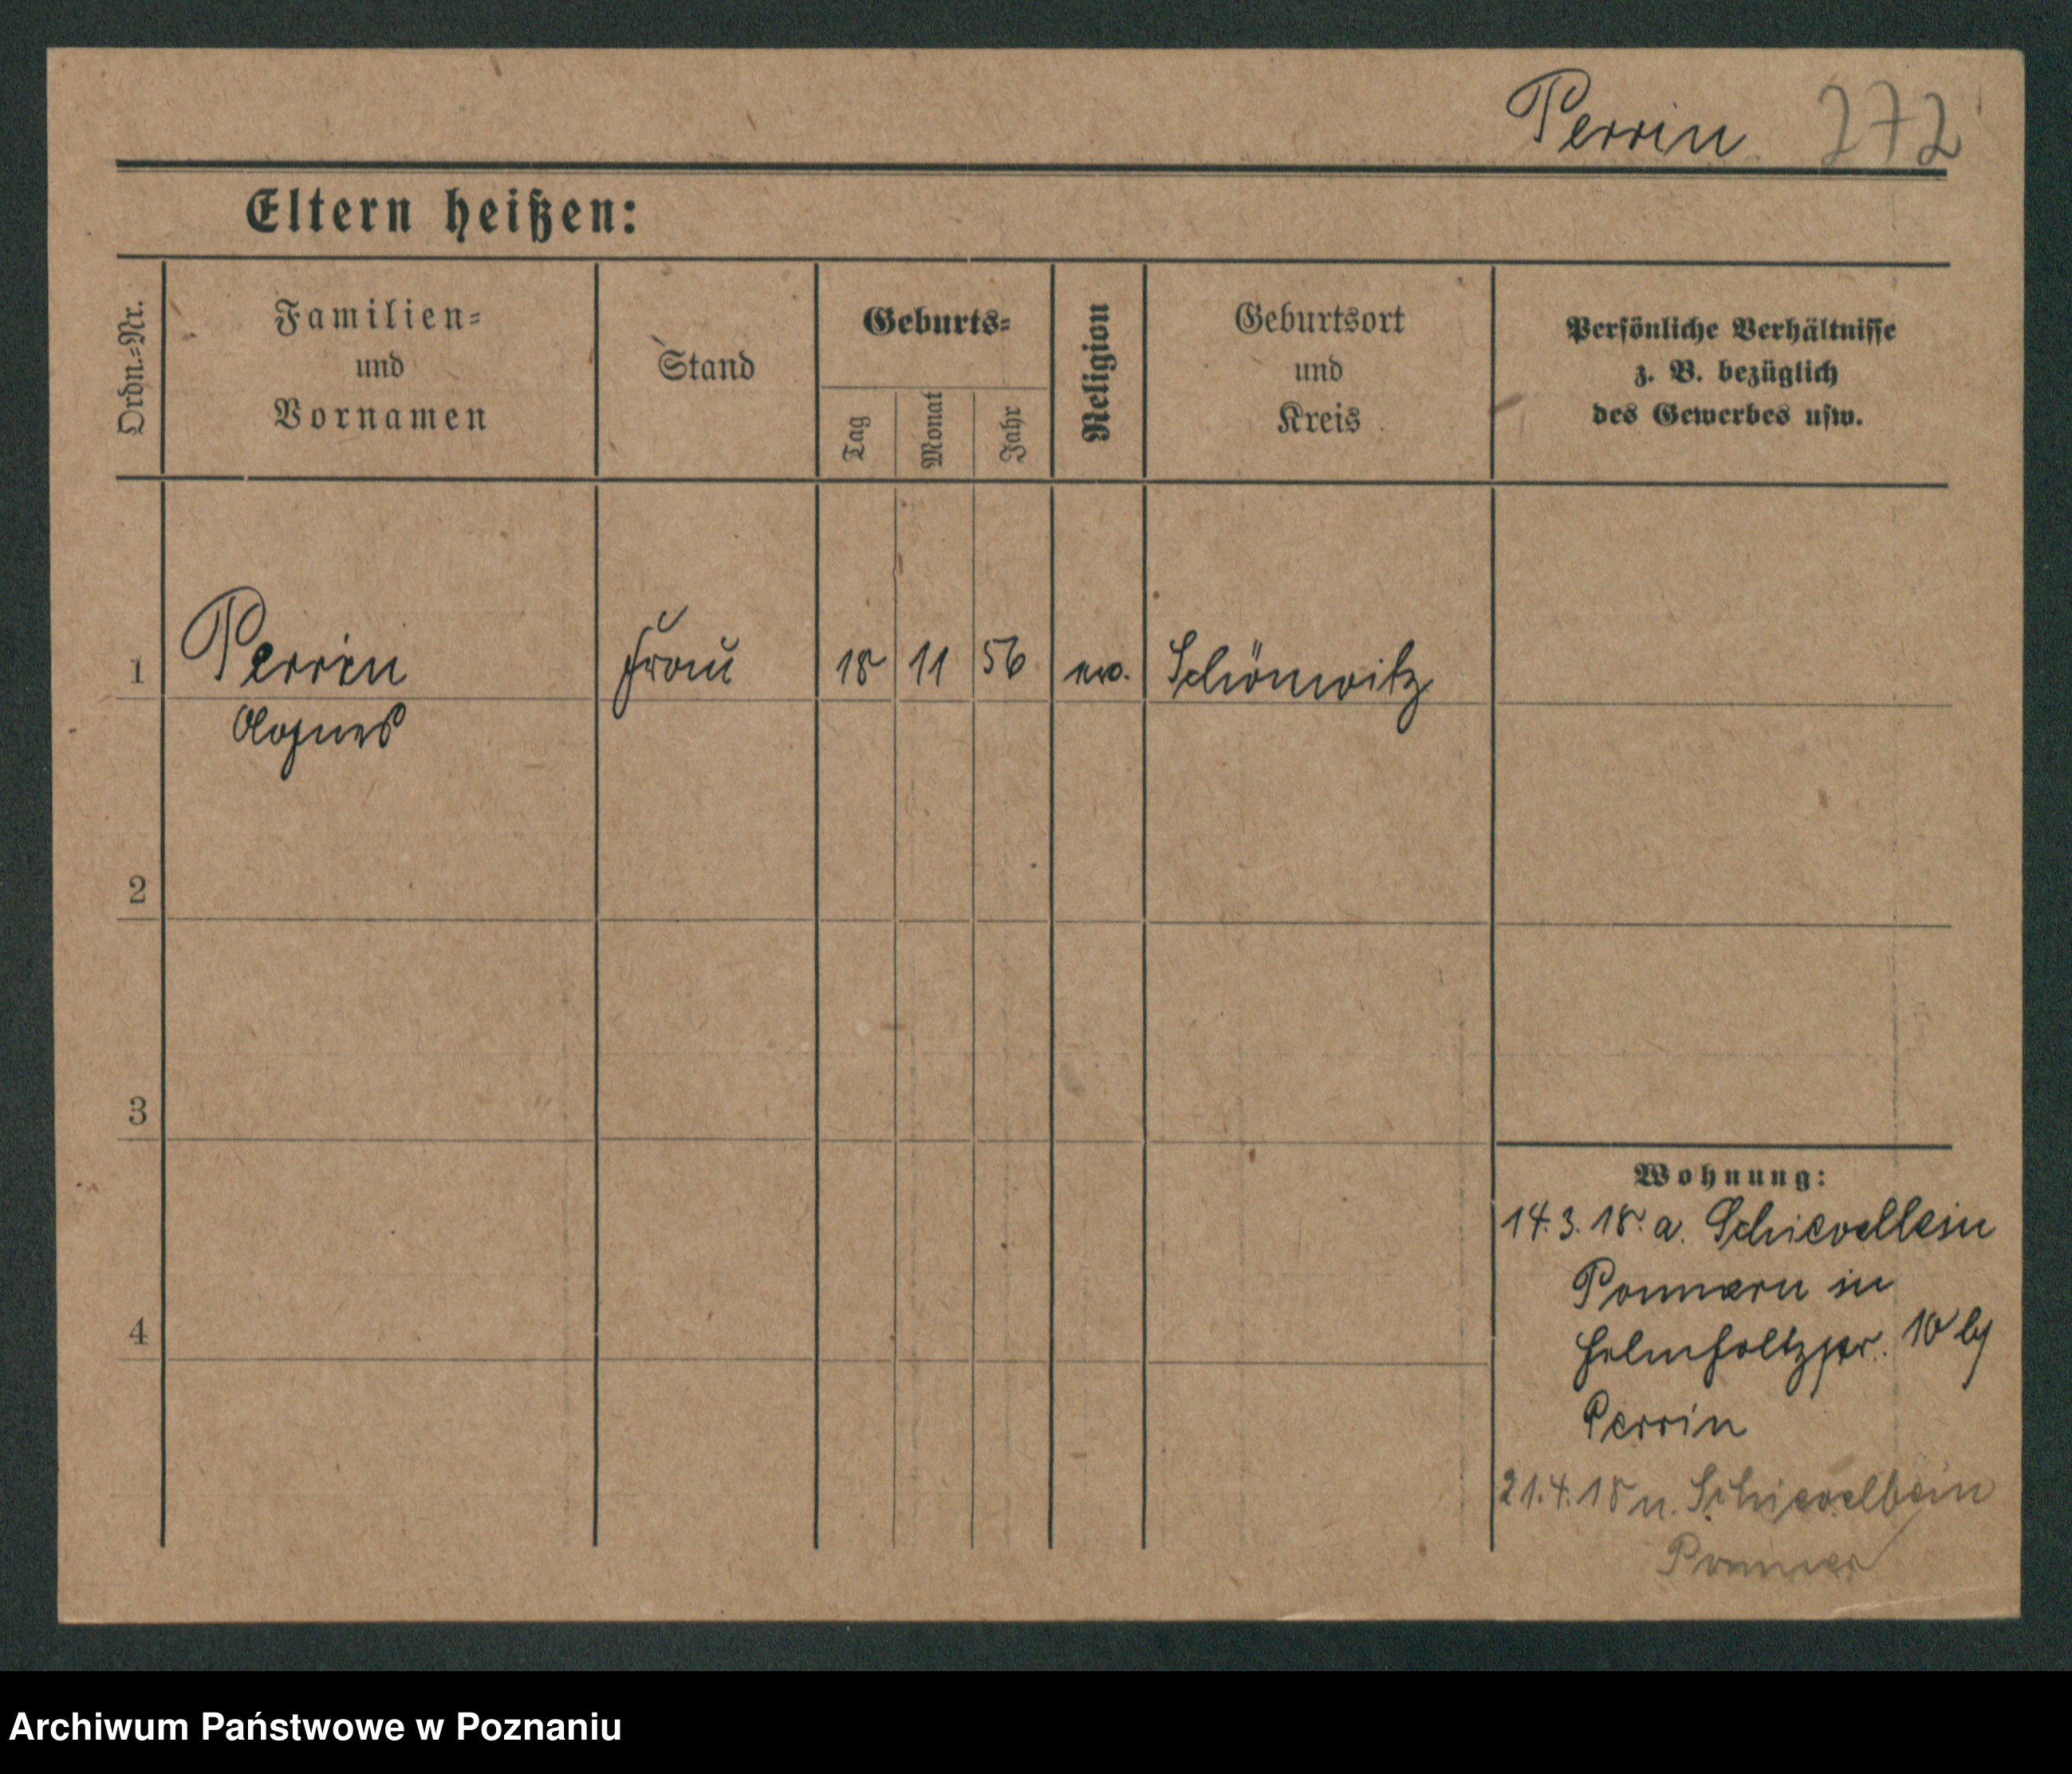 Perrin 272
Eltern heißen:
Ordn.-Nr.
Familien-
und
Vornamen
Stand
Geburts-
Tag
Monat
Jahr
Religion
Geburtsort
und
Kreis
Persönliche Verhältnisse
z. B. bezüglich
des Gewerbes usw.
1 Perrin Frau 18 11 56 ev. Schönwitz
Agnes
2
3
4
Wohnung:
14.3.18. a. Schievelbein
Pommern in
Helmholtzstr. 10 by
Perrin
21.4.18 n. Schievelbein
Pommer
Archiwum Państwowe w Poznaniu